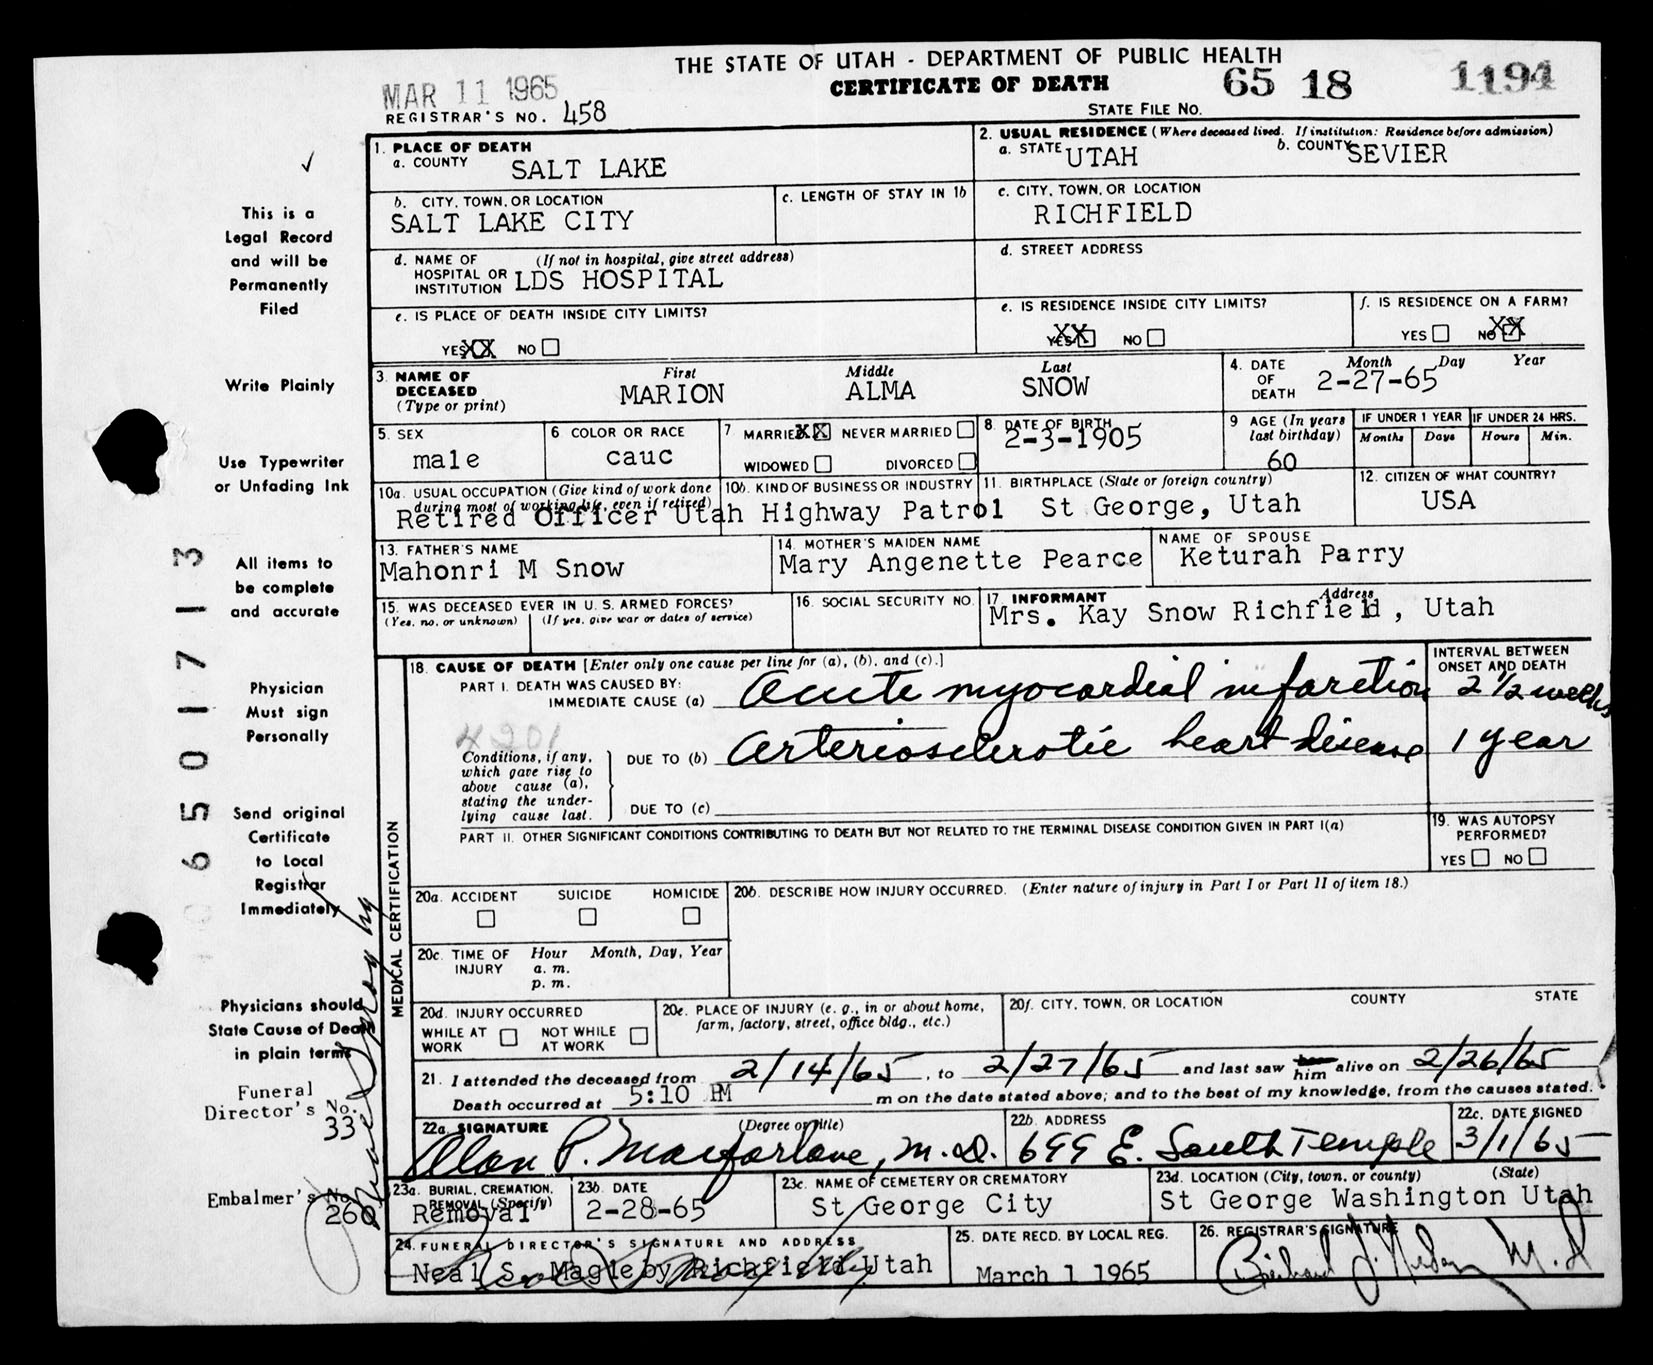 THE STATE OF UTAH - DEPARTMENT OF PUBLIC HEALTH
CERTIFICATE OF DEATH
65 18 1194
MAR 11 1965
REGISTRAR'S NO. 458
STATE FILE NO.
✓
This is a
Legal Record
and will be
Permanently
Filed
Write Plainly
Use Typewriter
or Unfading Ink
All items to
be complete
and accurate
Physician
Must sign
Personally
Send original
Certificate
to Local
Registrar
Immediately
Physicians should
State Cause of Death
in plain terms
Funeral
Director's No.
33
Embalmer's No.
260
65017 13
1. PLACE OF DEATH
a. COUNTY SALT LAKE
2. USUAL RESIDENCE (Where deceased lived. If institution: Residence before admission)
a. STATE UTAH b. COUNTY SEVIER
b. CITY, TOWN, OR LOCATION
SALT LAKE CITY
c. LENGTH OF STAY IN 1b
c. CITY, TOWN, OR LOCATION
RICHFIELD
d. NAME OF (If not in hospital, give street address)
HOSPITAL OR
INSTITUTION LDS HOSPITAL
d. STREET ADDRESS
e. IS PLACE OF DEATH INSIDE CITY LIMITS?
YES XX NO
e. IS RESIDENCE INSIDE CITY LIMITS?
YES XX NO
f. IS RESIDENCE ON A FARM?
YES NO XX
3. NAME OF
DECEASED
(Type or print)
First Middle Last
MARION ALMA SNOW
4. DATE
OF
DEATH
Month Day Year
2-27-65
5. SEX
male
6 COLOR OR RACE
cauc
7 MARRIED XX NEVER MARRIED
WIDOWED DIVORCED
8. DATE OF BIRTH
2-3-1905
9 AGE (In years
last birthday)
60
IF UNDER 1 YEAR IF UNDER 24 HRS.
Months Days Hours Min.
10a. USUAL OCCUPATION (Give kind of work done
during most of working life, even if retired)
Retired Officer
10b. KIND OF BUSINESS OR INDUSTRY
Utah Highway Patrol
11. BIRTHPLACE (State or foreign country)
St George, Utah
12. CITIZEN OF WHAT COUNTRY?
USA
13. FATHER'S NAME
Mahonri M Snow
14. MOTHER'S MAIDEN NAME
Mary Angenette Pearce
NAME OF SPOUSE
Keturah Parry
15. WAS DECEASED EVER IN U. S. ARMED FORCES?
(Yes, no, or unknown) (If yes, give war or dates of service)
16. SOCIAL SECURITY NO.
17. INFORMANT Address
Mrs. Kay Snow Richfield, Utah
MEDICAL CERTIFICATION
18. CAUSE OF DEATH [Enter only one cause per line for (a), (b), and (c).]
INTERVAL BETWEEN
ONSET AND DEATH
PART I. DEATH WAS CAUSED BY:
IMMEDIATE CAUSE (a) Acute myocardial infarction 2 1/2 weeks
4201
Conditions, if any,
which gave rise to
above cause (a),
stating the under-
lying cause last.
DUE TO (b) Arteriosclerotic heart disease 1 year
DUE TO (c)
PART II. OTHER SIGNIFICANT CONDITIONS CONTRIBUTING TO DEATH BUT NOT RELATED TO THE TERMINAL DISEASE CONDITION GIVEN IN PART I(a)
19. WAS AUTOPSY
PERFORMED?
YES NO
20a. ACCIDENT SUICIDE HOMICIDE
20b. DESCRIBE HOW INJURY OCCURRED. (Enter nature of injury in Part I or Part II of item 18.)
20c. TIME OF Hour Month, Day, Year
INJURY a. m.
p. m.
20d. INJURY OCCURRED
WHILE AT NOT WHILE
WORK AT WORK
20e. PLACE OF INJURY (e. g., in or about home,
farm, factory, street, office bldg., etc.)
20f. CITY, TOWN, OR LOCATION COUNTY STATE
21. I attended the deceased from 2/14/65, to 2/27/65 and last saw her him alive on 2/26/65
Death occurred at 5:10 PM m on the date stated above; and to the best of my knowledge, from the causes stated.
22a. SIGNATURE (Degree or title)
Alan P. Macfarlane, M.D.
22b. ADDRESS
699 E. South Temple
22c. DATE SIGNED
3/1/65
23a. BURIAL, CREMATION,
REMOVAL (Specify)
Removal
23b. DATE
2-28-65
23c. NAME OF CEMETERY OR CREMATORY
St George City
23d. LOCATION (City, town, or county) (State)
St George Washington Utah
24. FUNERAL DIRECTOR'S SIGNATURE AND ADDRESS
Neal S. Magleby Richfield Utah
25. DATE RECD. BY LOCAL REG.
March 1 1965
26. REGISTRAR'S SIGNATURE
M.D